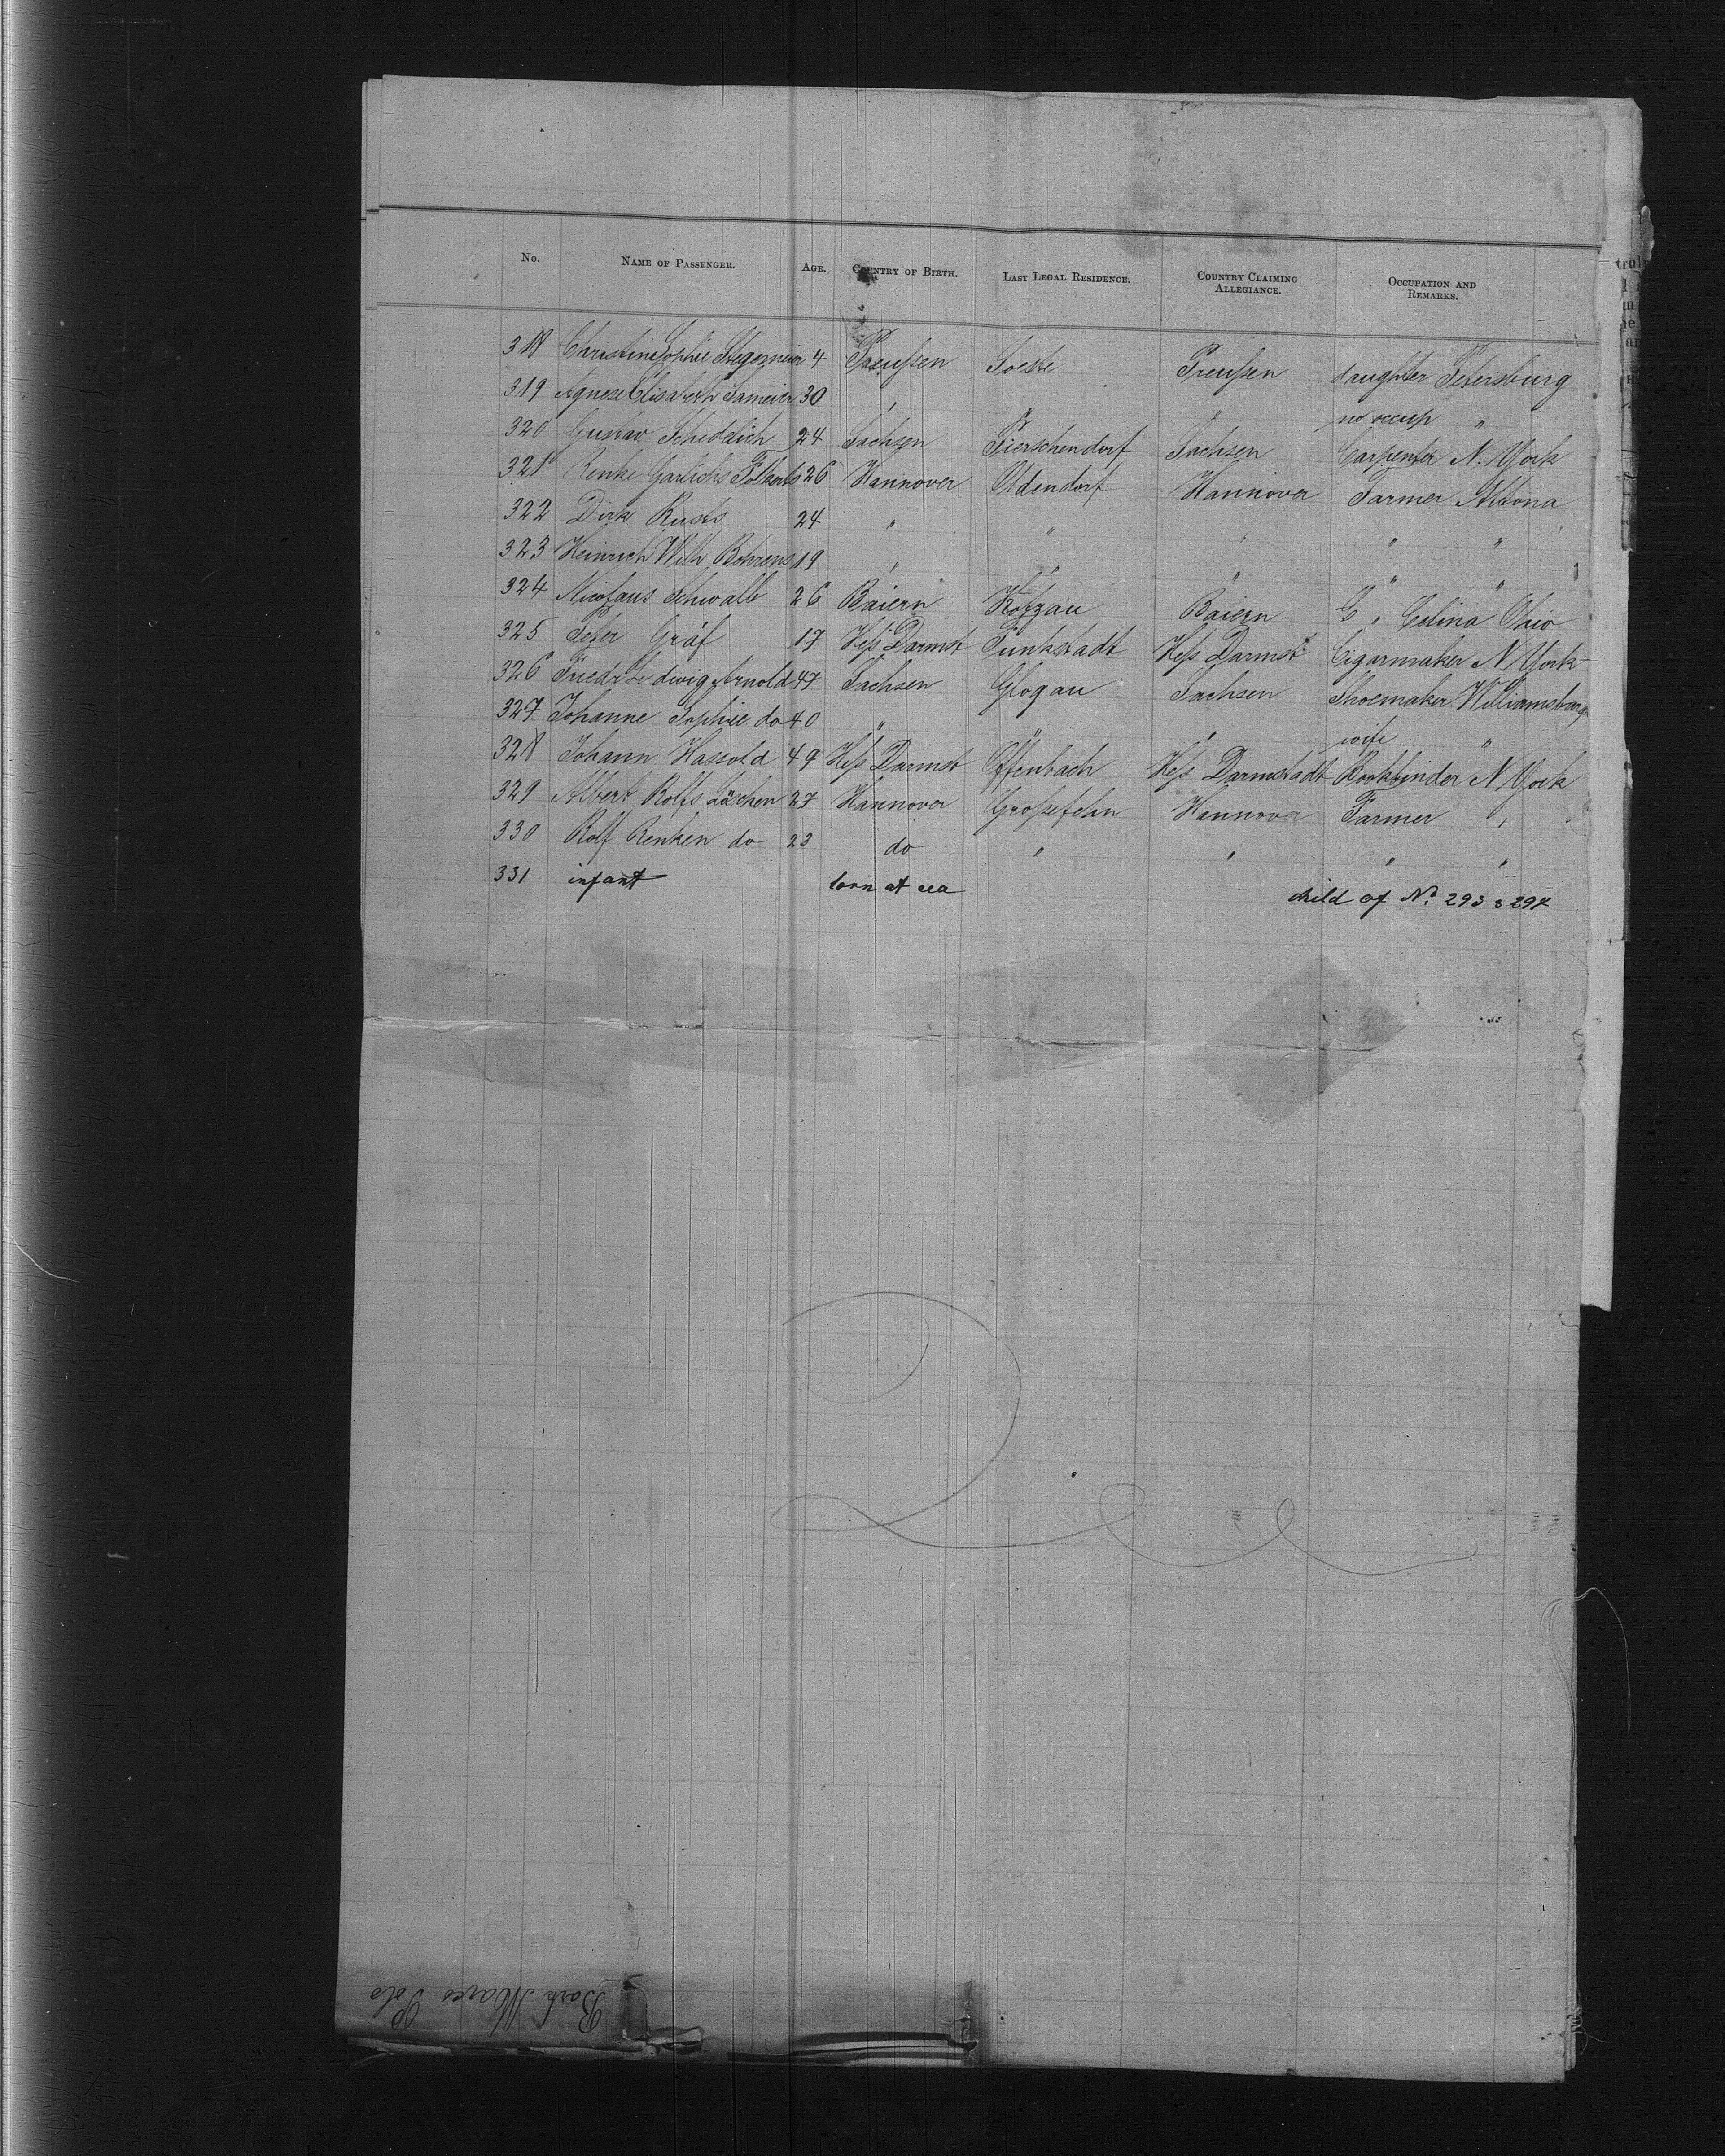 No. NAME OF PASSENGER. AGE. COUNTRY OF BIRTH. LAST LEGAL RESIDENCE. COUNTRY CLAIMING ALLEGIANCE. OCCUPATION AND REMARKS.
318 Christine Sophie Stegemeier 4 Preußen Soeste Preußen daughter Petersburg
319 Agnese Elisabeth Sameier 30 " " " no occup "
320 Gustav 24 Sachsen Pierschendorf Sachsen Carpenter N. York
321 Renke Garlichs Folkerts 26 Hannover Oldendorf Hannover Farmer Altona
322 Dirk 24 " " " " "
323 Heinrich Wilh. Behrens 19 " " " " "
324 Nicolaus Schwalb 26 Baiern Kotzau Baiern " Celina Ohio
325 Peter Gräf 17 Heß Darmst Funkstadt Heß Darmst Cigarmaker N York
326 Friedr Ludwig Arnold 47 Sachsen Glogau Sachsen Shoemaker Williamsburg
327 Johanne Sophie do 40 " " " wife "
328 Johann Hassold 49 Heß Darmst Offenbach Heß Darmstadt Bookbinder N York
329 Albert Rolfs Läschen 27 Hannover Großefehn Hannover Farmer "
330 Rolf Renken do 23 do " " " "
331 infant born at sea child of No. 293 & 294
Bark Marco Polo